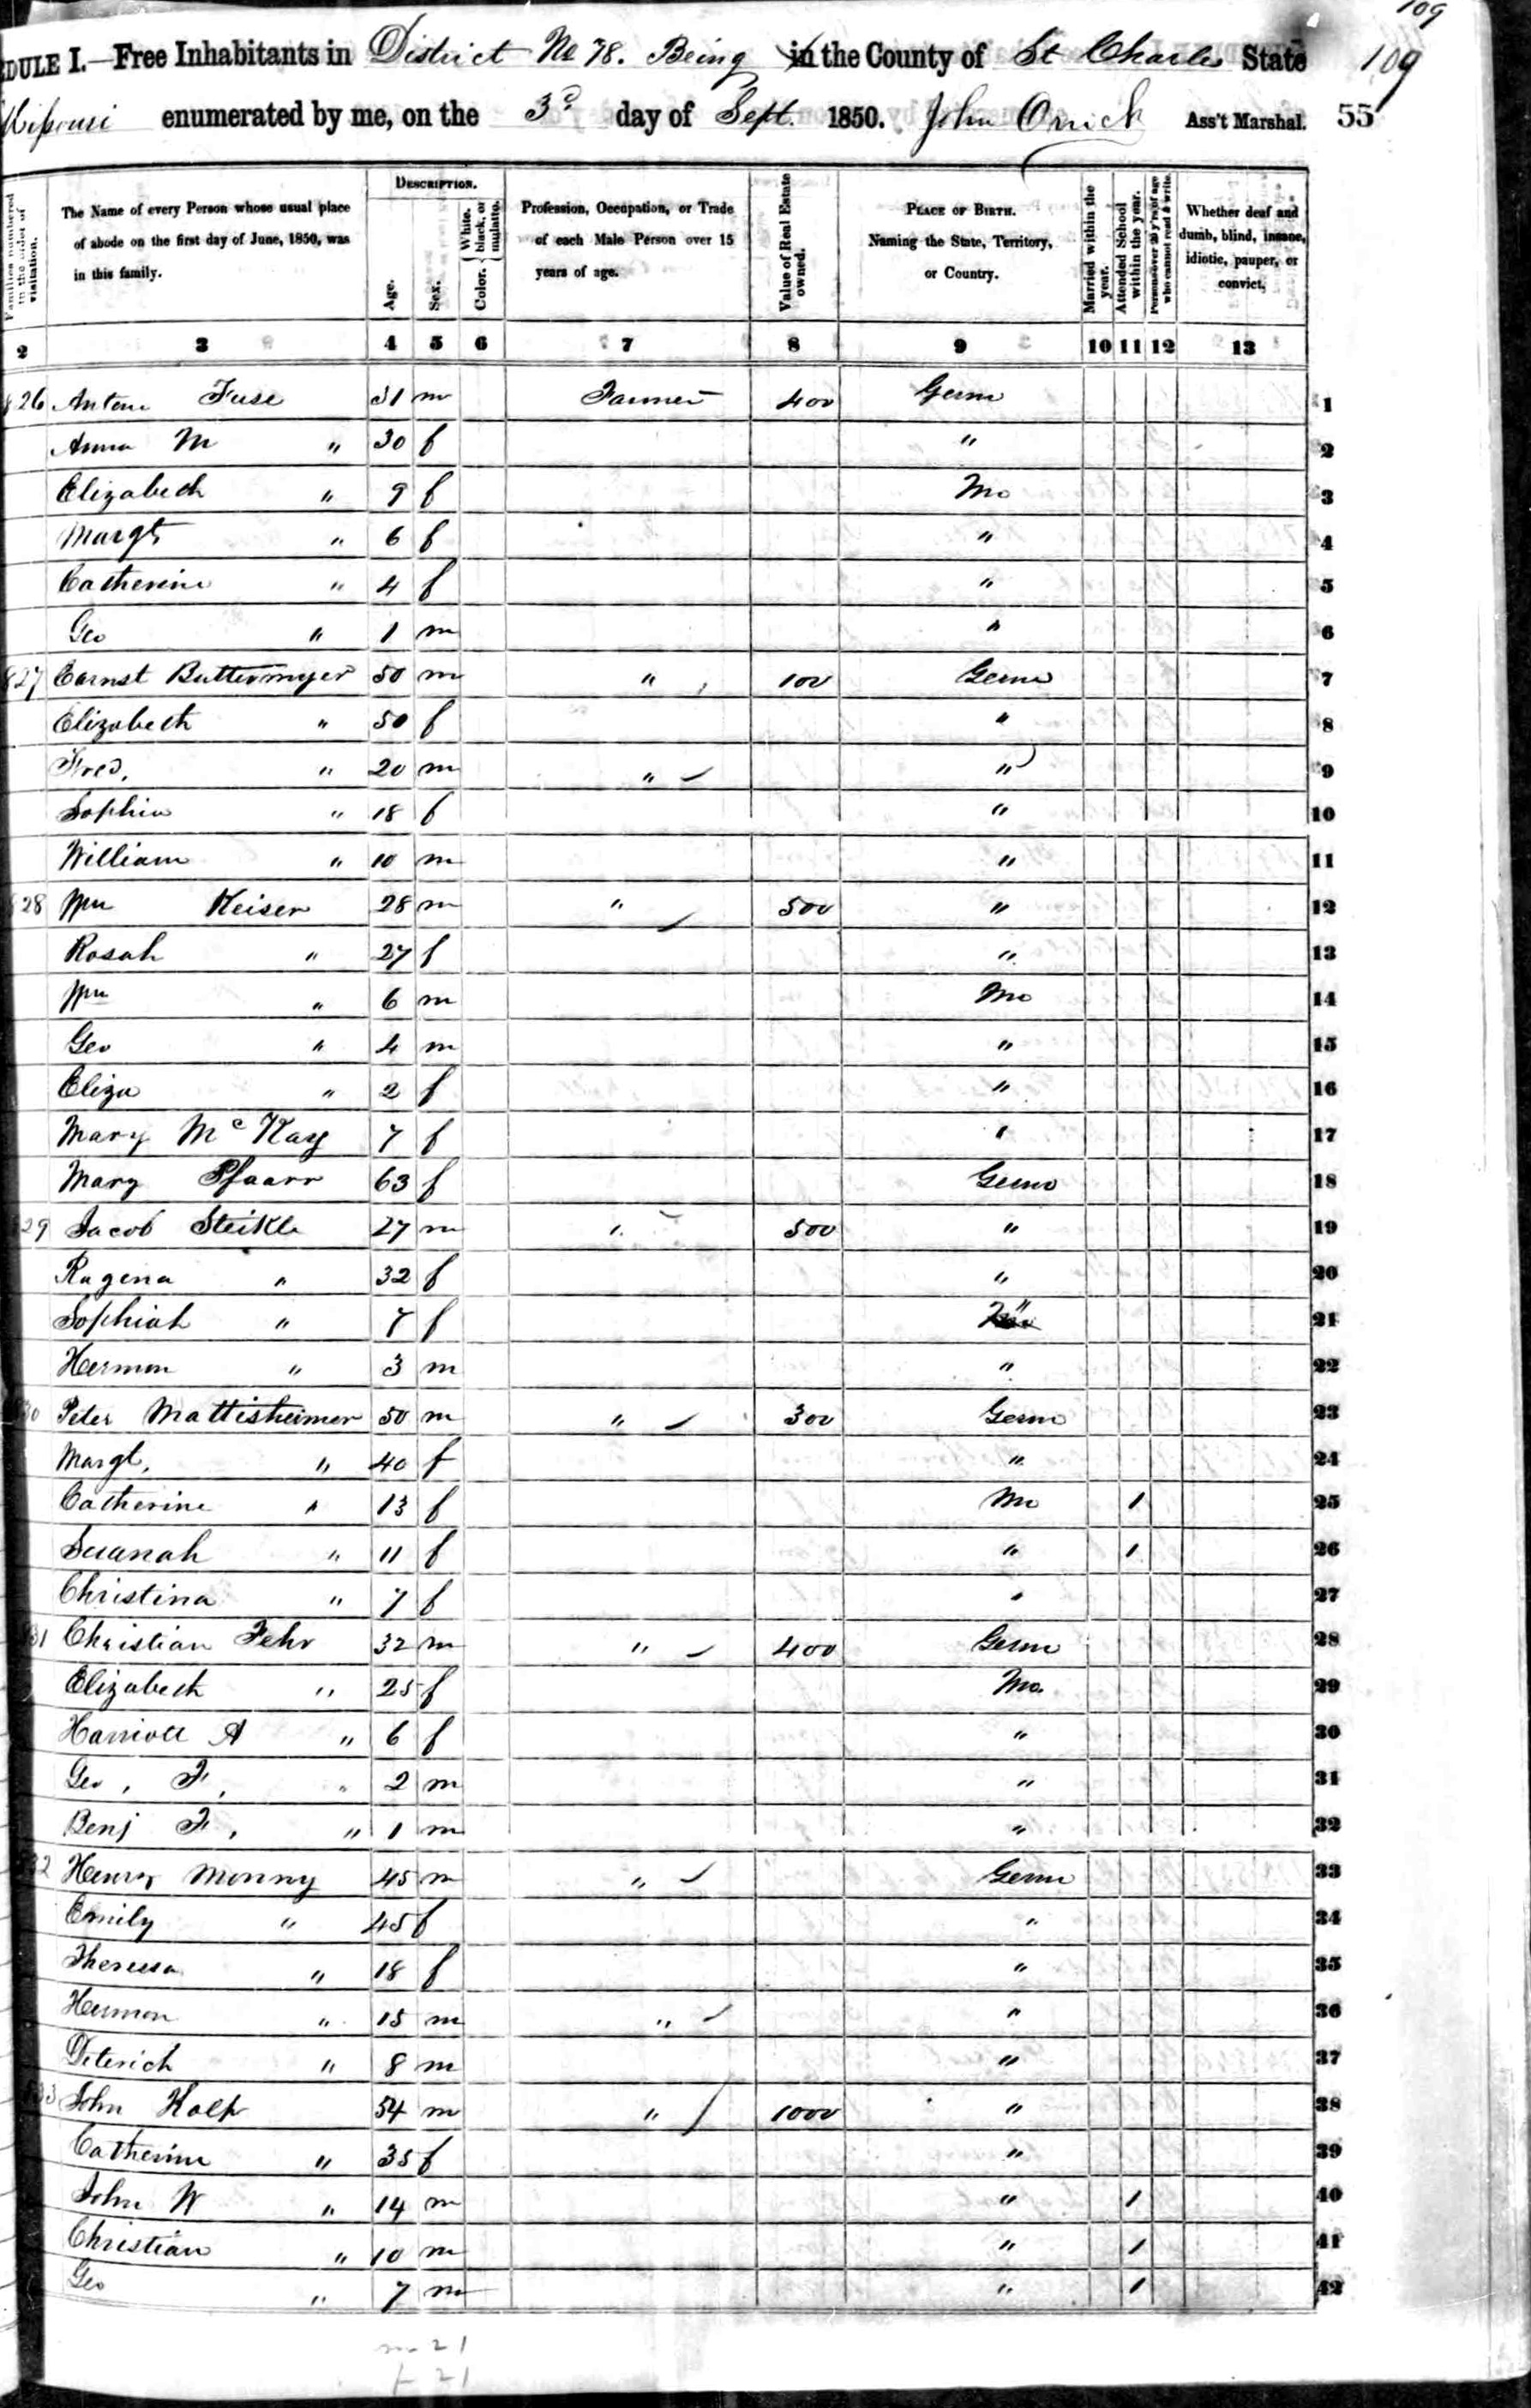 109
DULE I.—Free Inhabitants in District No 78. Being in the County of St Charles State 109
Missouri enumerated by me, on the 3d day of Sept. 1850. John Orrick Ass't Marshal. 55
Families numbered in the order of visitation.
The Name of every Person whose usual place of abode on the first day of June, 1850, was in this family.
DESCRIPTION.
Age.
Sex.
Color. { White, black, or mulatto.
Profession, Occupation, or Trade of each Male Person over 15 years of age.
Value of Real Estate owned.
PLACE OF BIRTH. Naming the State, Territory, or Country.
Married within the year.
Attended School within the year.
Persons over 20 y'rs of age who cannot read & write.
Whether deaf and dumb, blind, insane, idiotic, pauper, or convict.
2 3 4 5 6 7 8 9 10 11 12 13
826 Anton Fuse 31 m Farmer 400 Germ 1
Anna M " 30 f " 2
Elizabeth " 9 f Mo 3
Margt " 6 f " 4
Catherine " 4 f " 5
Geo " 1 m " 6
827 Earnst Buttermyer 50 m " 100 Germ 7
Elizabeth " 50 f " 8
Fred. " 20 m " " 9
Sophia " 18 f " 10
William " 10 m " 11
28 Wm Keiser 28 m " 500 " 12
Rosah " 27 f " 13
Wm " 6 m Mo 14
Geo " 4 m " 15
Eliza " 2 f " 16
Mary McKay 7 f " 17
Mary Pfaarr 63 f Germ 18
29 Jacob Steikle 27 m " 500 " 19
Ragena " 32 f " 20
Sophiah " 7 f " 21
Hermon " 3 m " 22
30 Peter Mattisheimer 50 m " 300 Germ 23
Margt, " 40 f " 24
Catherine " 13 f Mo 1 25
Suanah " 11 f " 1 26
Christina " 7 f " 27
31 Christian Fehr 32 m " 400 Germ 28
Elizabeth " 25 f Mo. 29
Harriott A " 6 f " 30
Geo, F, " 2 m " 31
Benj F, " 1 m " 32
32 Henry Monny 45 m " Germ 33
Emily " 45 f " 34
Theressa " 18 f " 35
Hermon " 15 m " " 36
Deterich " 8 m " 37
33 John Kolp 54 m " 1000 " 38
Catherine " 35 f " 39
John W " 14 m " 1 40
Christian " 10 m " 1 41
Geo " 7 m " 1 42
m 21
f 21